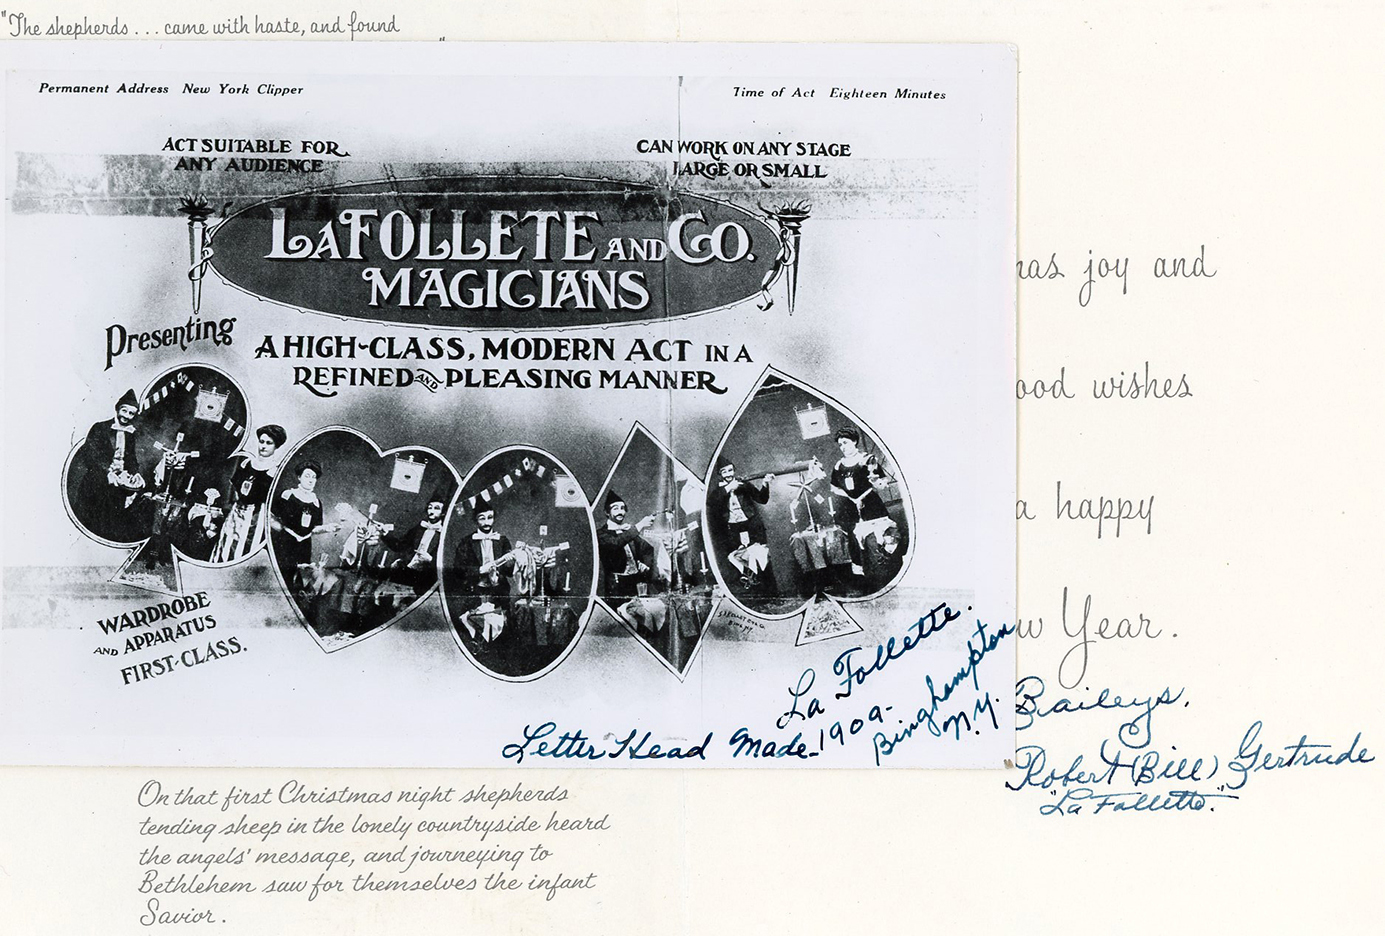 "The shepherds . . . came with haste, and found
"
Permanent Address New York Clipper
Time of Act Eighteen Minutes
ACT SUITABLE FOR
ANY AUDIENCE
CAN WORK ON ANY STAGE
LARGE OR SMALL
LAFOLLETE AND CO.
MAGICIANS
Presenting
A HIGH-CLASS, MODERN ACT IN A
REFINED AND PLEASING MANNER
WARDROBE
AND APPARATUS
FIRST-CLASS.
La Follette.
Letter Head Made-1909-
Binghampton
N.Y.
as joy and
ood wishes
a happy
w Year.
Baileys.
Robert (Bill) Gertrude
"La Follette."
On that first Christmas night shepherds
tending sheep in the lonely countryside heard
the angels' message, and journeying to
Bethlehem saw for themselves the infant
Savior.